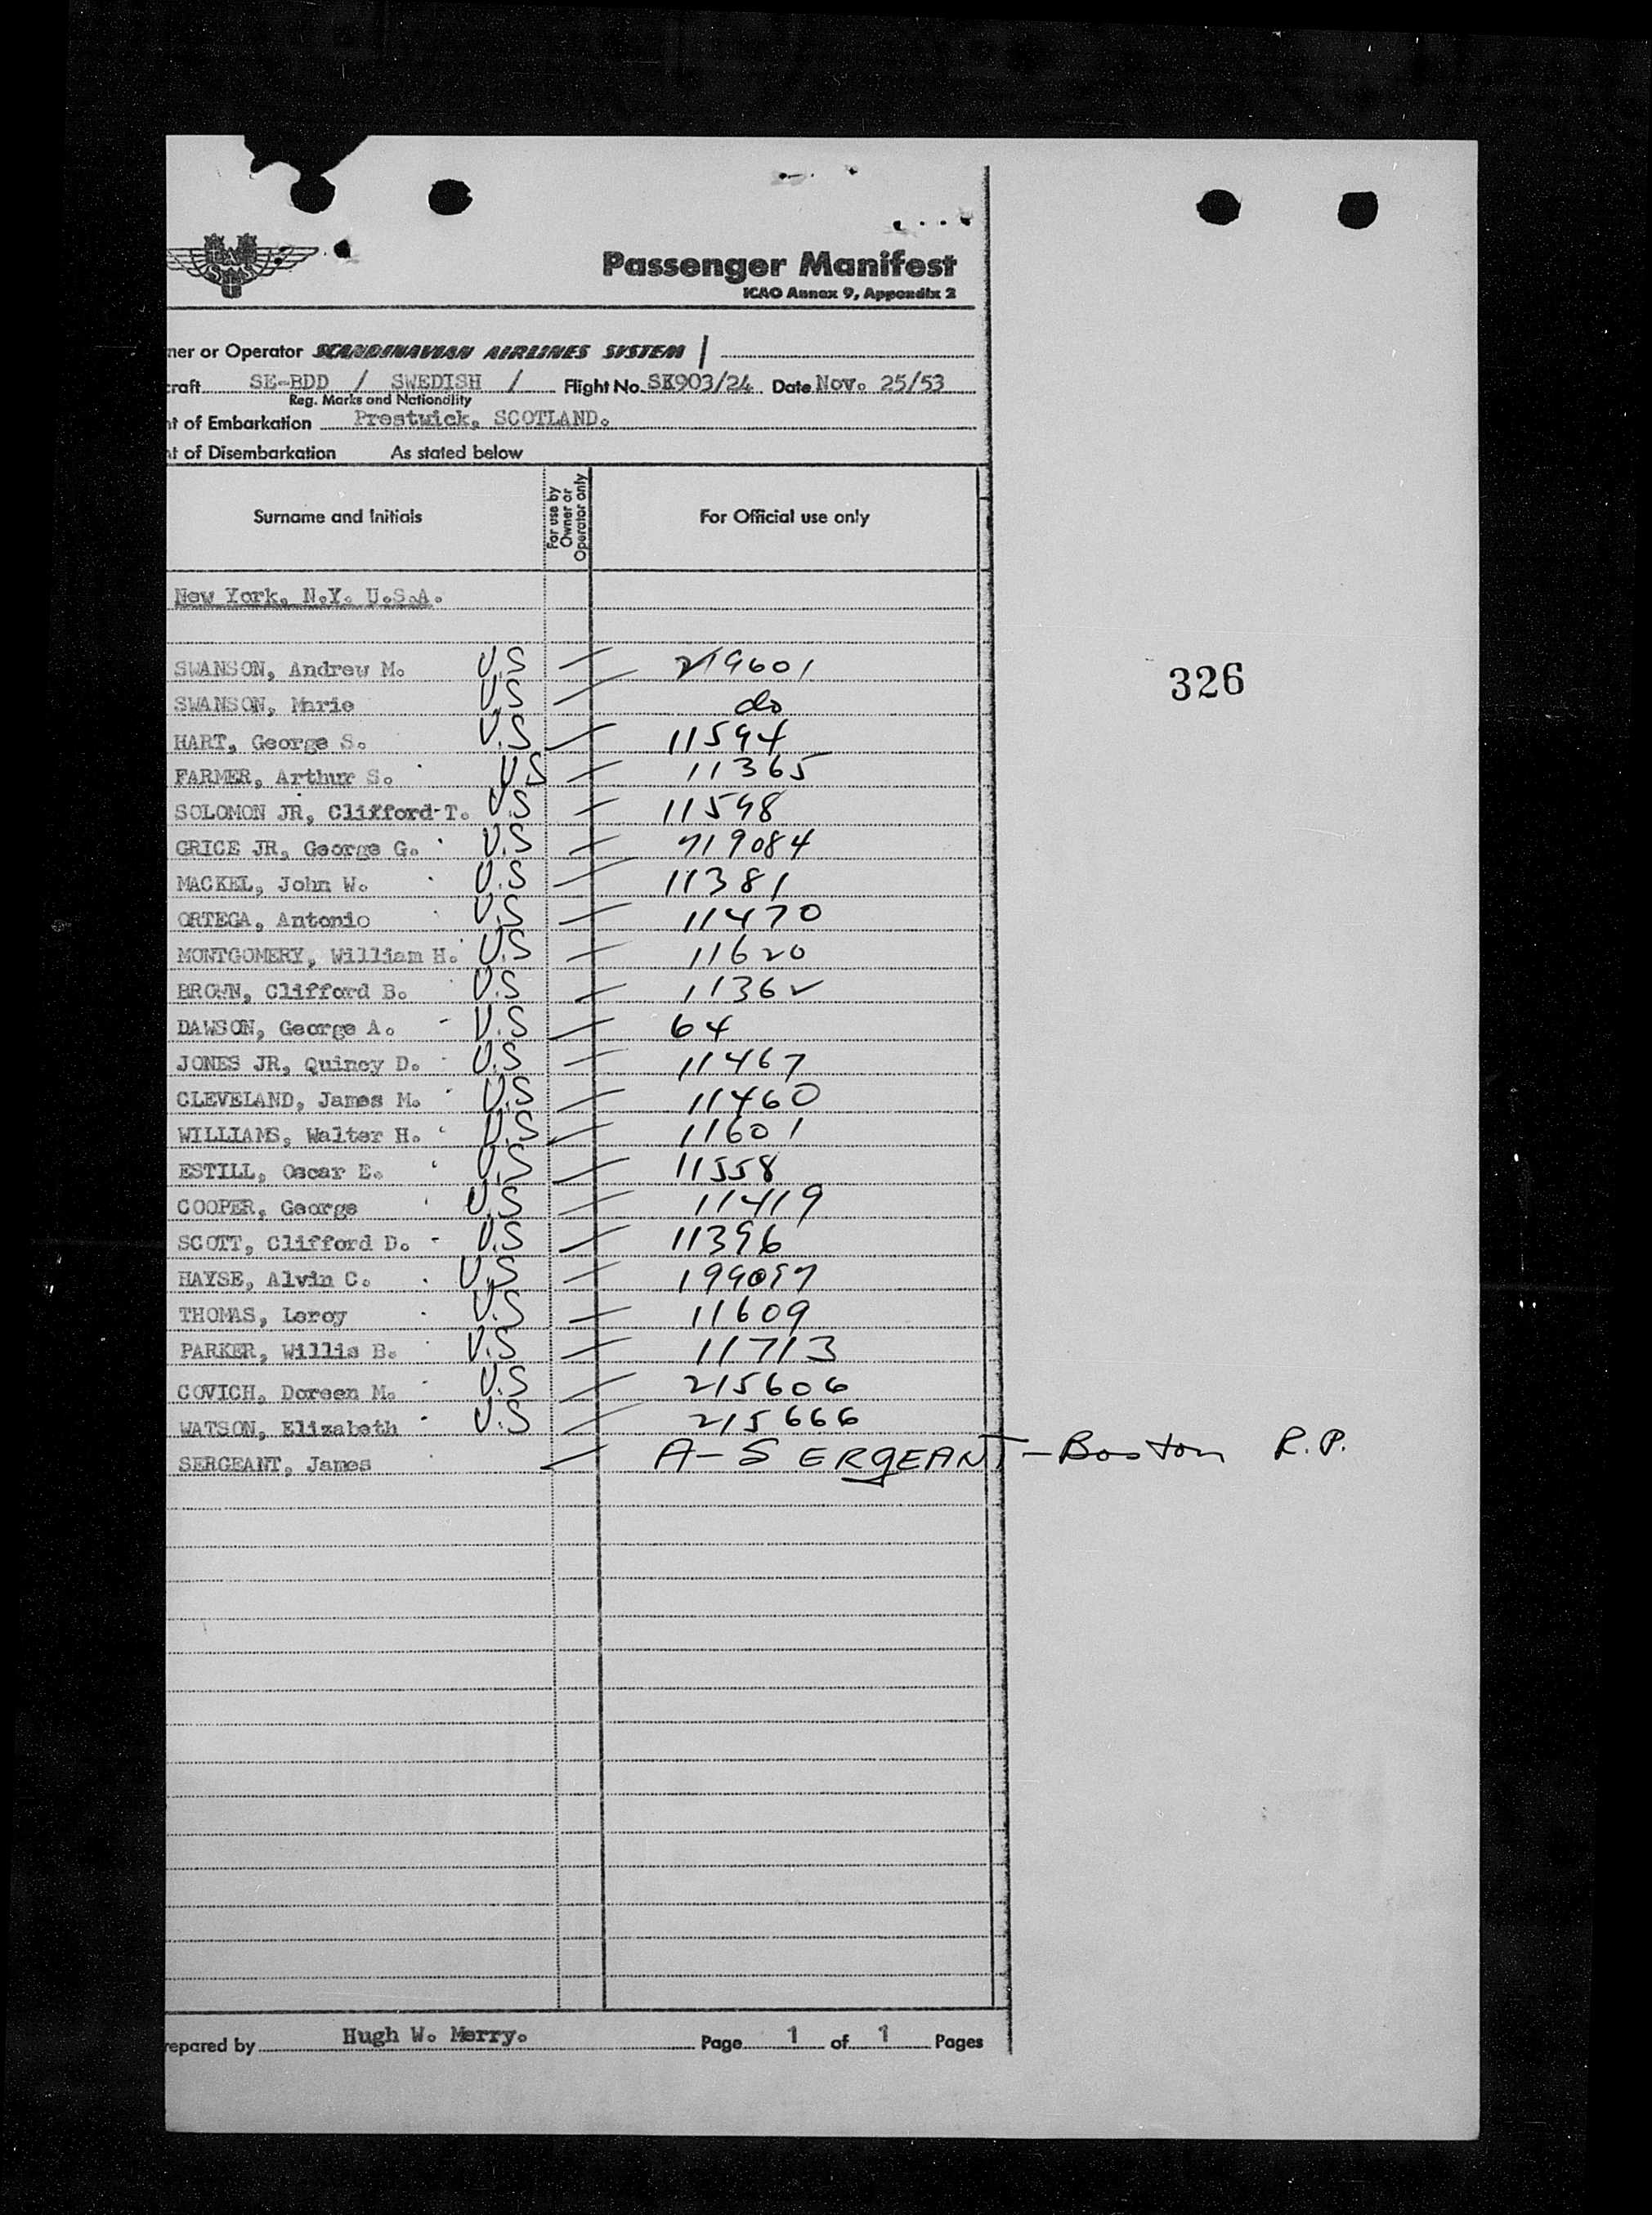 Passenger Manifest
ICAO Annex 9, Appendix 2
ner or Operator SCANDINAVIAN AIRLINES SYSTEM
craft SE-BDD / SWEDISH / Flight No. SK903/24 Date Nov. 25/53
Reg. Marks and Nationality
nt of Embarkation Prestwick, SCOTLAND.
nt of Disembarkation As stated below
Surname and Initials For use by Owner or Operator only For Official use only
New York, N.Y. U.S.A.
SWANSON, Andrew M. U.S 219601
326
SWANSON, Marie U.S do
HART, George S. U.S 11594
FARMER, Arthur S. U.S 11365
SOLOMON JR, Clifford T. U.S 11598
GRICE JR, George G. U.S 719084
MACKEL, John W. U.S 11381
ORTEGA, Antonio U.S 11470
MONTGOMERY, William H. U.S 11620
BROWN, Clifford B. U.S 11362
DAWSON, George A. U.S 64
JONES JR, Quincy D. U.S 11467
CLEVELAND, James M. U.S 11460
WILLIAMS, Walter H. U.S 11601
ESTILL, Oscar E. U.S 11558
COOPER, George U.S 11419
SCOTT, Clifford D. U.S 11396
HAYSE, Alvin C. U.S
THOMAS, Leroy U.S 11609
PARKER, Willis B. U.S 11713
COVICH, Doreen M. U.S 215606
WATSON, Elizabeth U.S 215666
SERGEANT, James A-SERGEANT-Boston R.P.
repared by Hugh W. Merry. Page 1 of 1 Pages